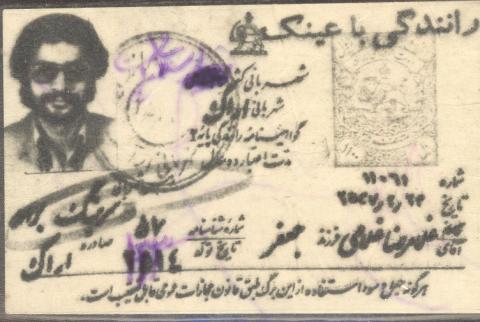 رانندگی با عینک
شهربانی کشور
شهربانی اراک
گواهینامه رانندگی پایه ۲
مدت اعتبار ده سال
شماره ۱۱۰۶۱
تاریخ
آقای غلامرضا غلامی فرزند جعفر
شماره شناسنامه ۵۷
تاریخ تولد
صادره اراک
هرگونه جعل و سوء استفاده از این برگ طبق قانون مجازات عمومی قابل تعقیب است.